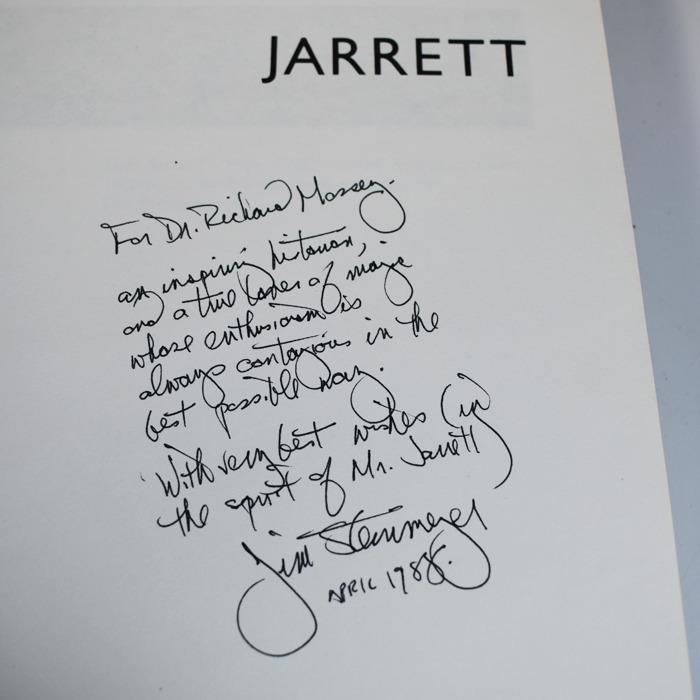 JARRETT
For Dr. Richard Massey.
an inspiring historian,
and a true lover of magic
whose enthusiasm is
always contagious in the
best possible way.
With very best wishes (in
the spirit of Mr. Jarrett)
Jim Steinmeyer
APRIL 1988.